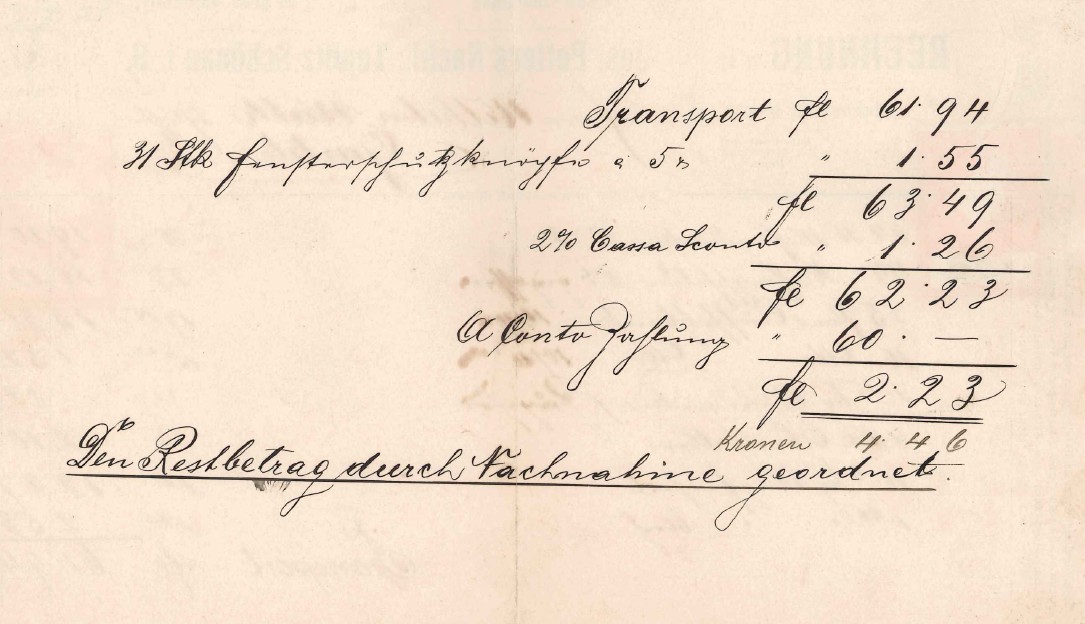 Transport fl 61.94
31 Stk Fensterschutzknöpfe à 5 " 1.55
fl 63.49
2% Cassa Sconto " 1.26
fl 62.23
A Conto Zahlung " 60.—
fl 2.23
Kronen 4.46
Den Restbetrag durch Nachnahme geordnet.